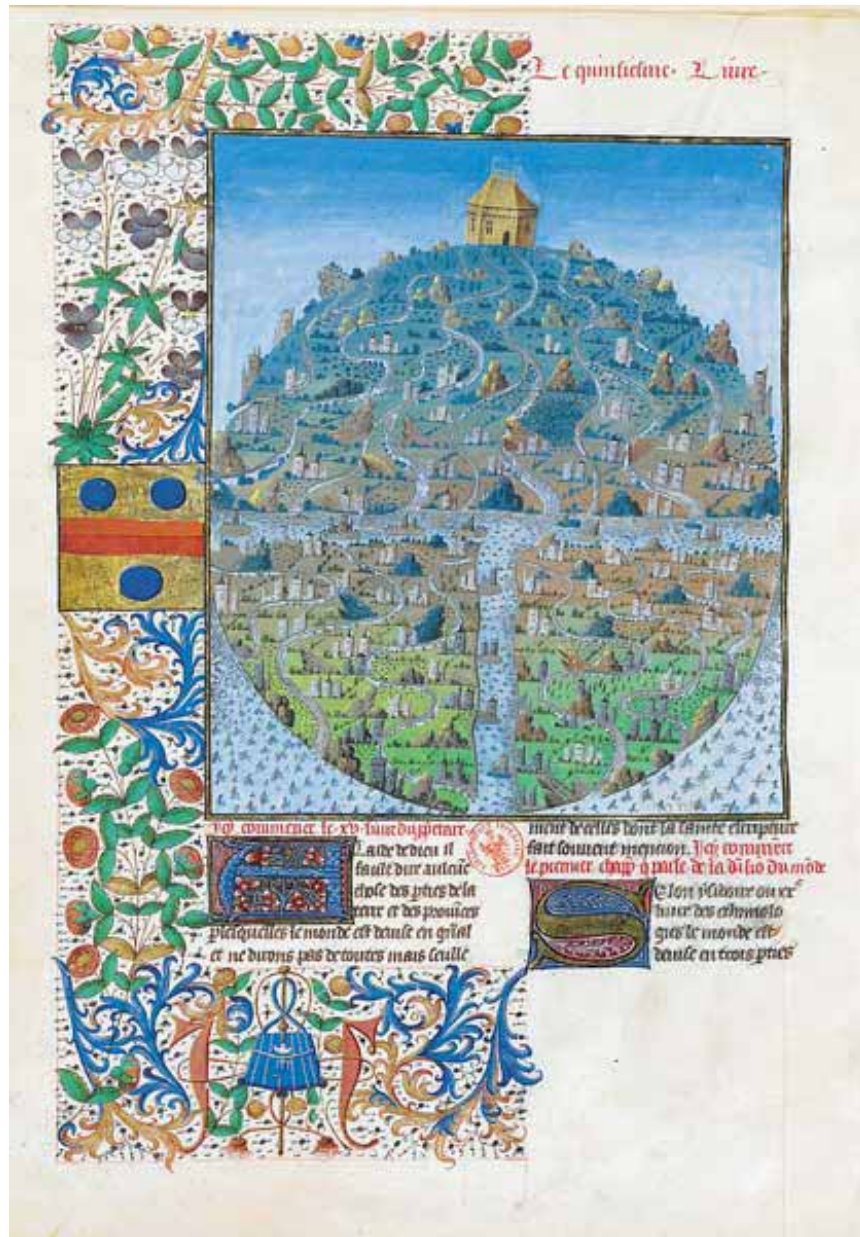 Le quinsiesme. Liure.
Cy commence le .xv. liure du ppetaire
A laide de dieu il
fault dire aulcūe
chose des pties de la
terre et des prouīces
p lesquelles le monde est deuise en gñal
et ne dirons pas de toutes mais seulle
ment de celles dont la sainte escripture
fait souuent mencion. Cy commence
le premier chapp̄ q̄ parle de la diuisiō du mōde
Selon ysidore ou xve
liure des ethimolo
gies le monde est
deuise en trois pties